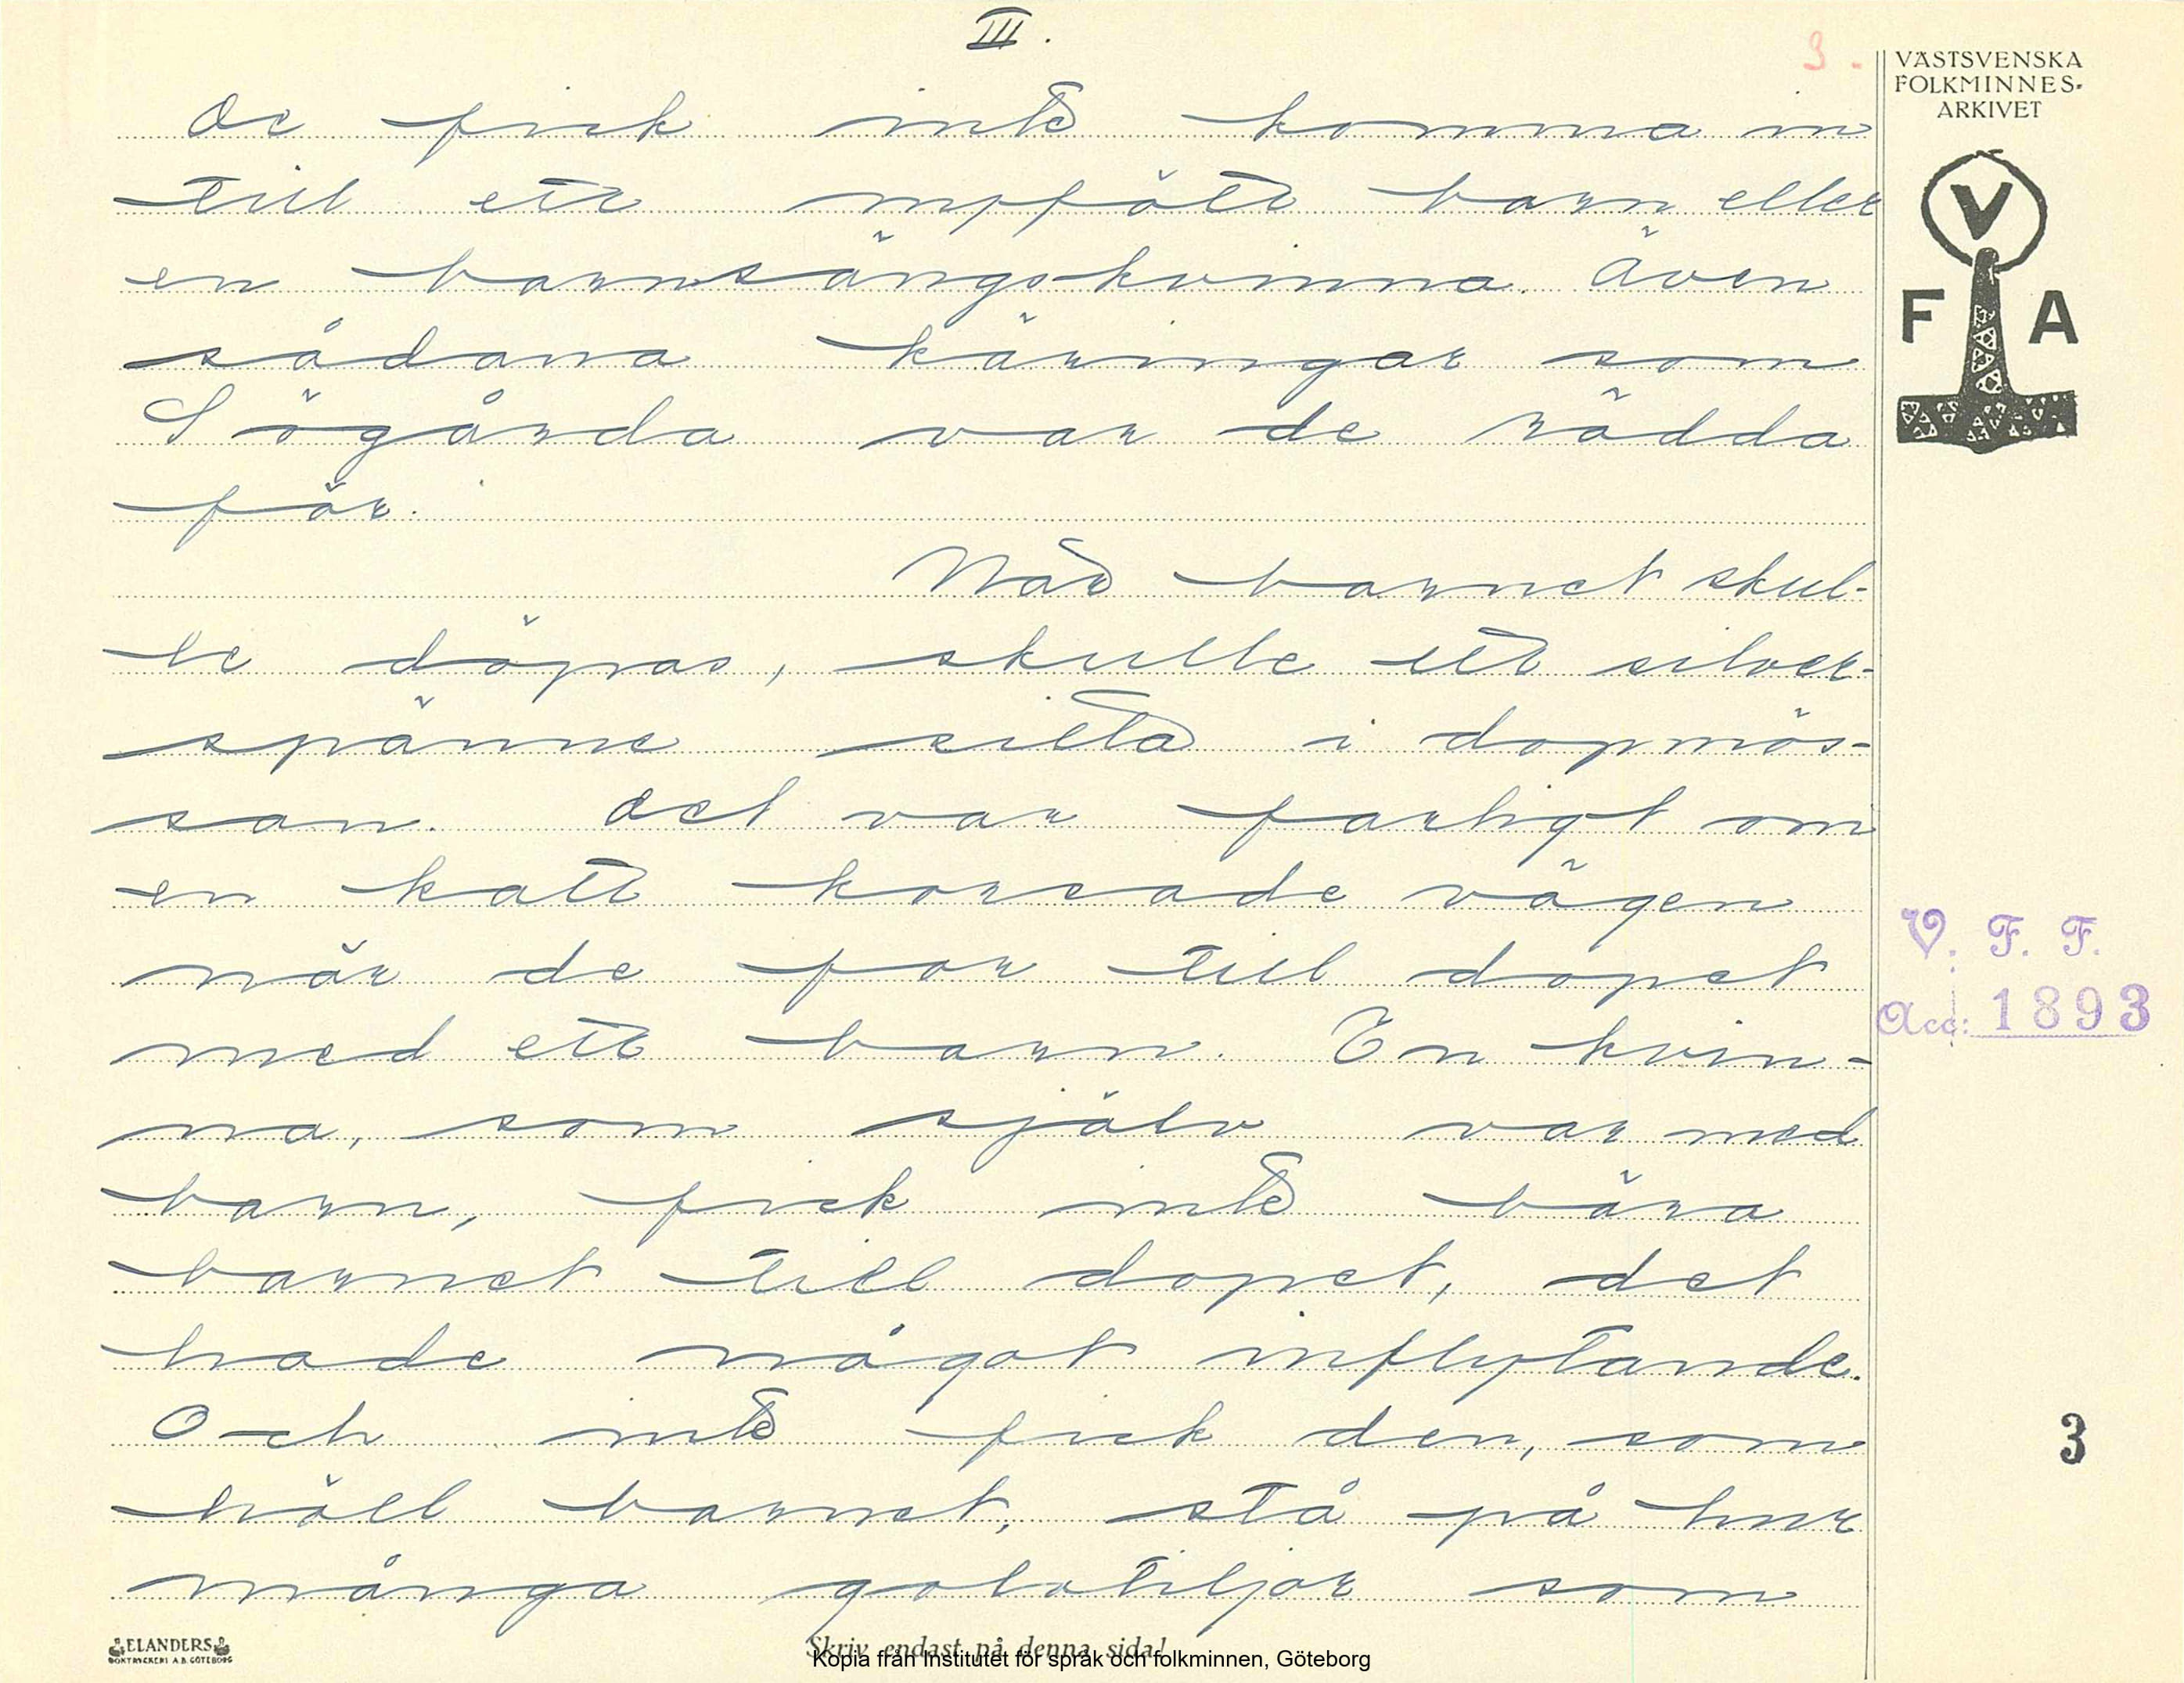 III.
3.
VÄSTSVENSKA
FOLKMINNES-
ARKIVET
V
F A
De fick inte komma in
till ett nyfött barn eller
en barnsängskvinna. Även
sådana käringar som
Sögårda var de rädda
för.
När barnet skul-
le döpas, skulle ett silver-
spänne sitta i dopmös-
san. Det var farligt om
en katt korsade vägen
när de for till dopet
med ett barn. En kvin-
na, som själv var med
barn, fick inte bära
barnet till dopet, det
hade något inflytande.
Och inte fick den, som
höll barnet, stå på hur
många golvtiljor som
V. F. F.
Acc: 1893
3
ELANDERS
BOKTRYCKERI A.B. GÖTEBORG
Skriv endast på denna sida!
Kopia från Institutet för språk och folkminnen, Göteborg